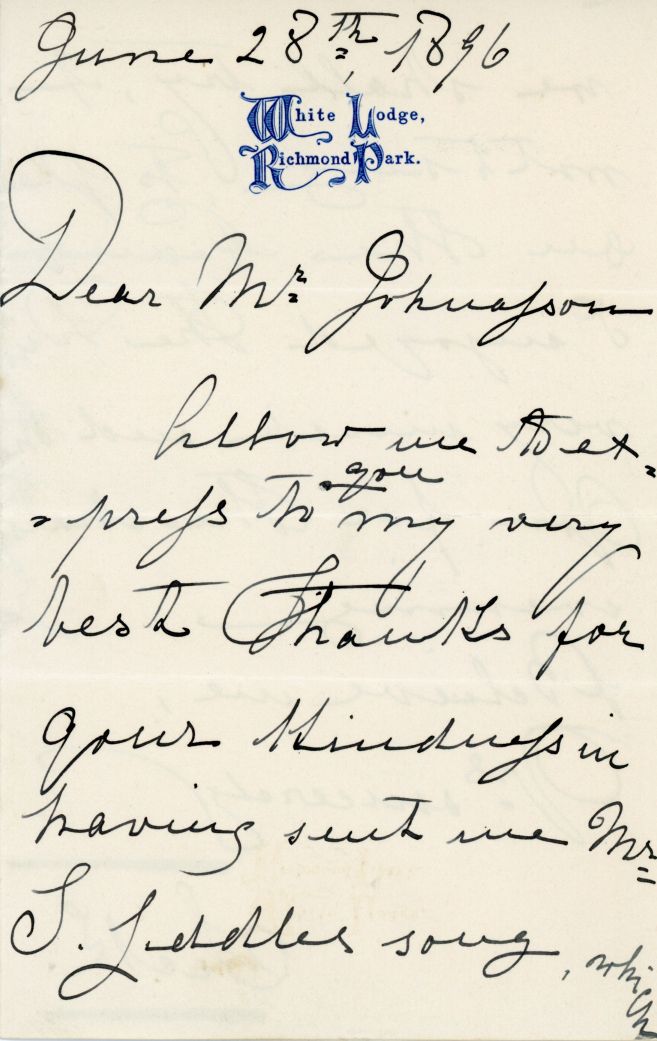 June 28th, 1896
White Lodge,
Richmond Park.
Dear Mr Johnasson
Allow me to ex=
you
=press to my very
best Thanks for
your kindness in
having sent me Mr
S. Liddles song, which